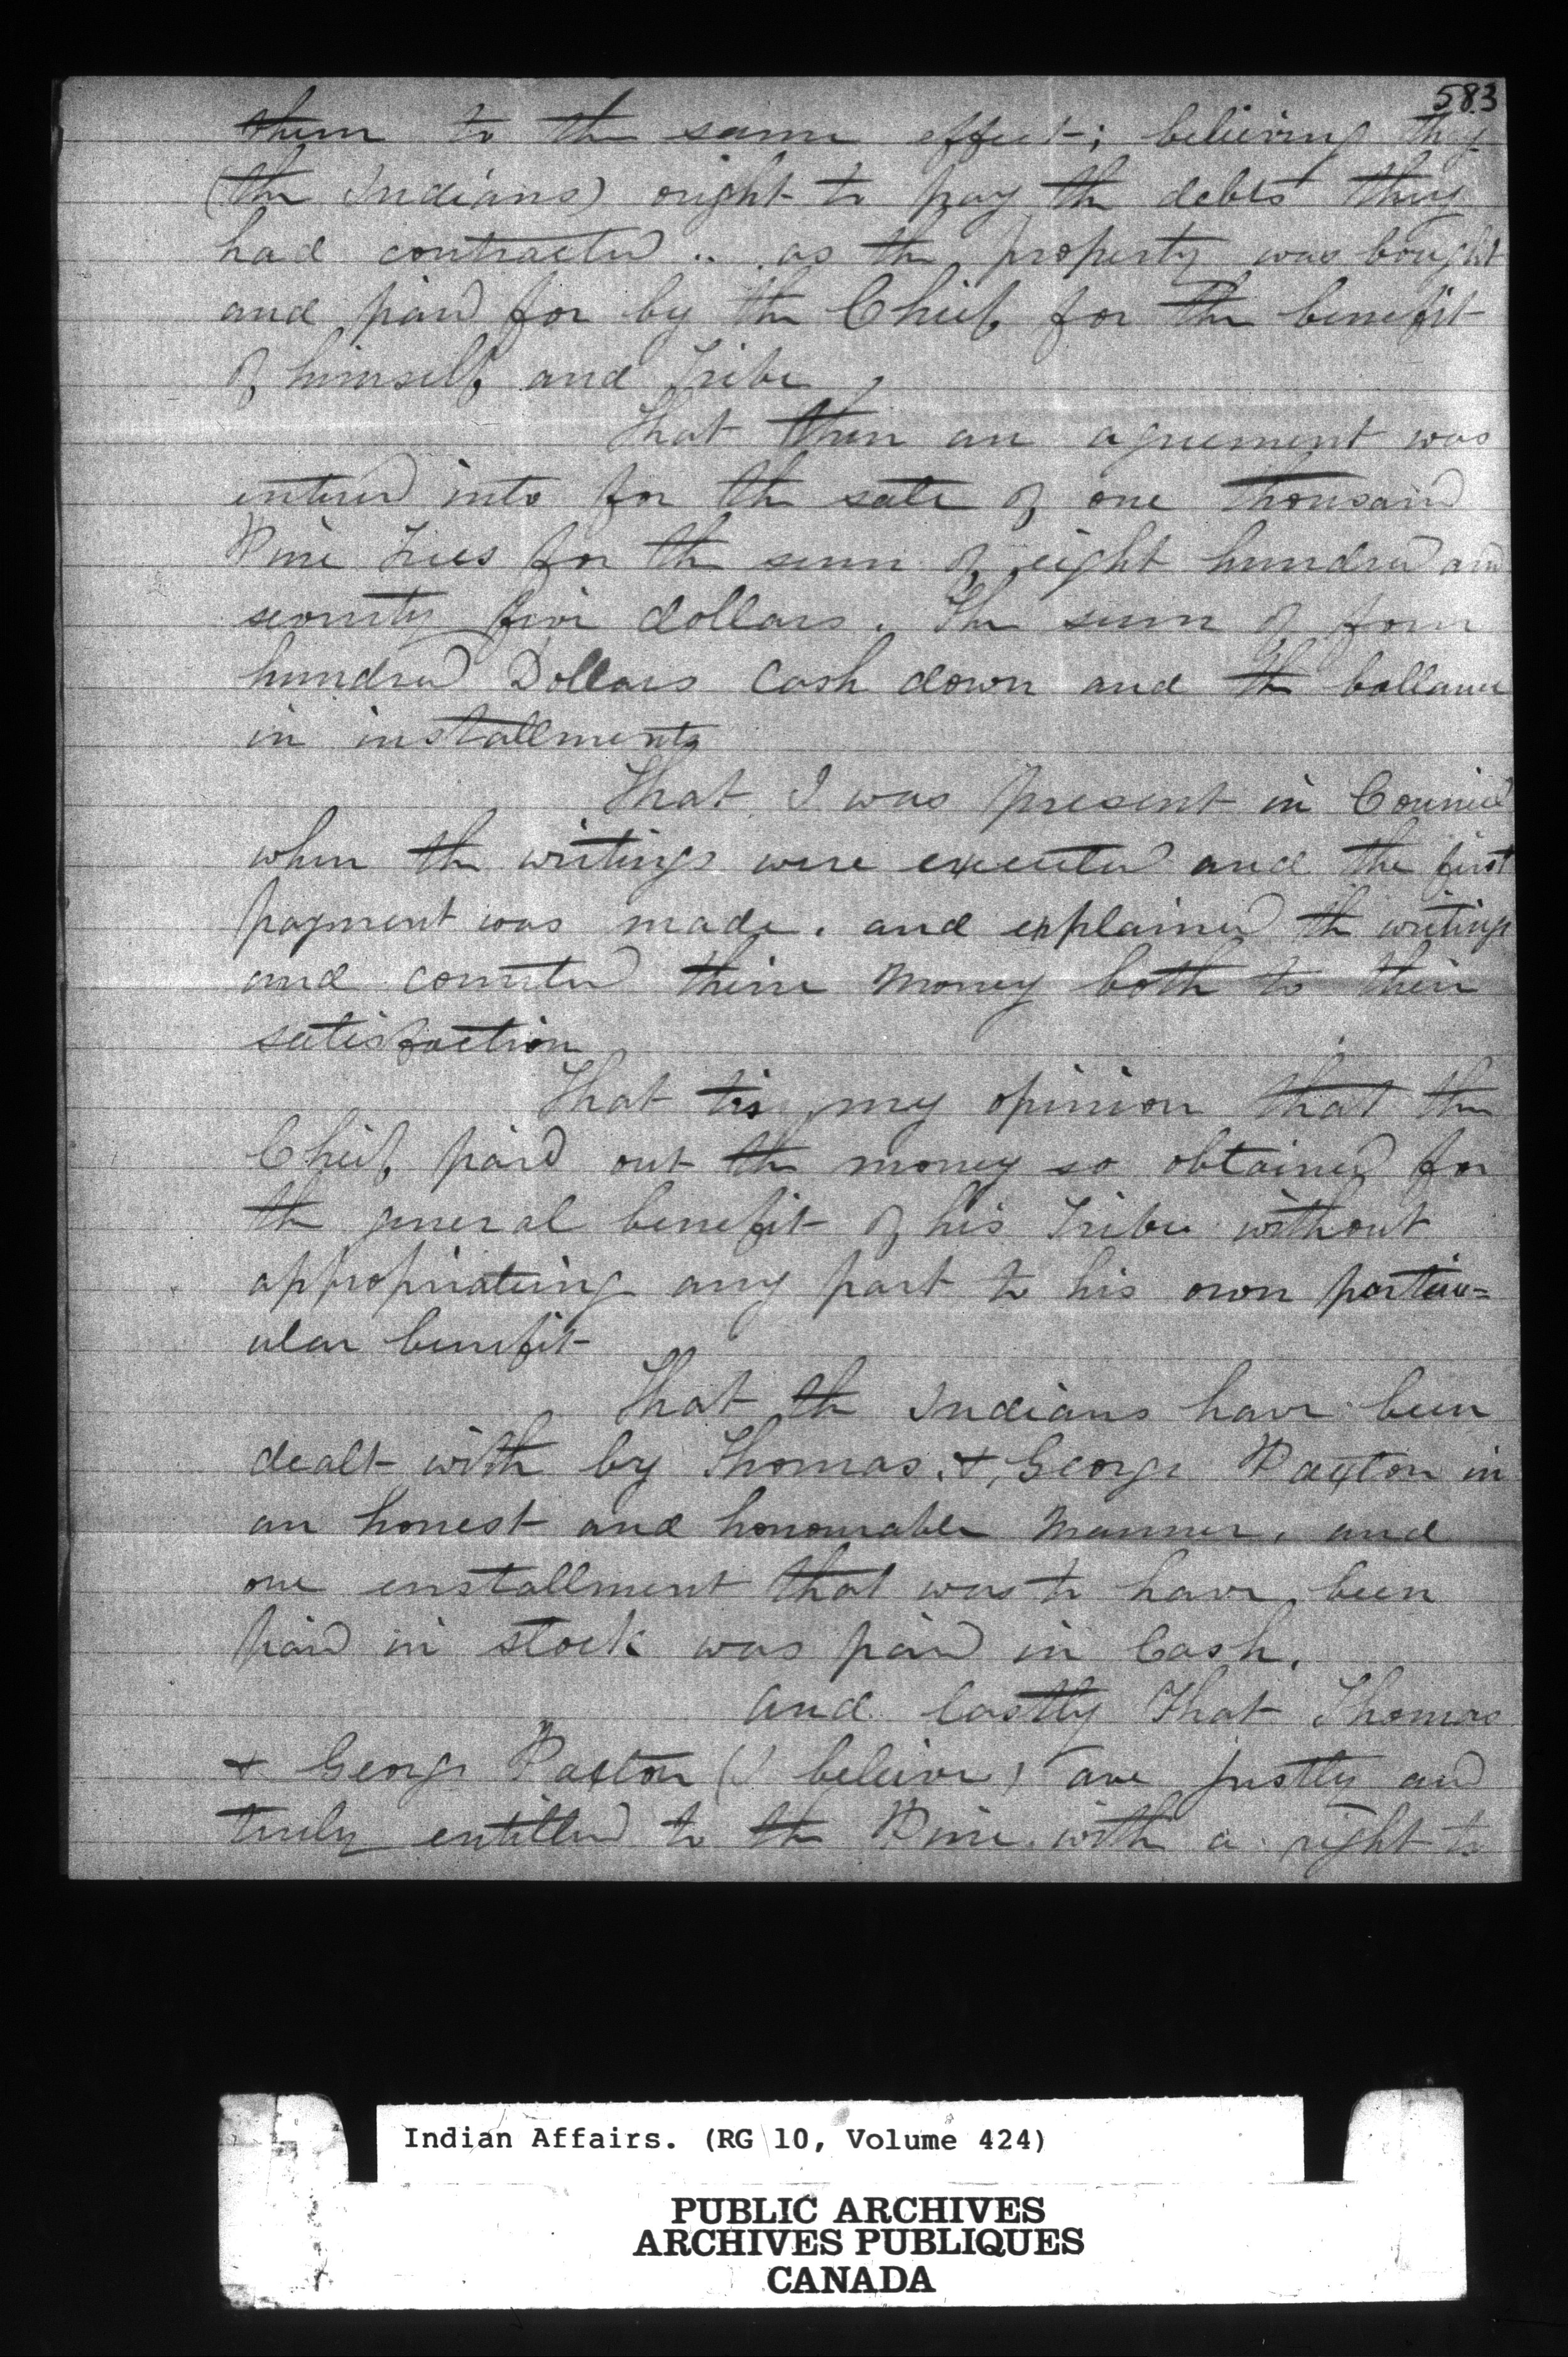 583
them to the same effect; believing they
(the Indians) ought to pay the debts they
had contracted .. as the property was bought
and paid for by the Chief, for the benefit
of himself, and Tribe,
That then an agreement was
entered into for the sale of one thousand
Pine Trees for the sum of eight hundred and
seventy five dollars. The sum of four
hundred Dollars Cash down and the ballance
in installments
That I was present in Council
when the writings were executed and the first
payment was made. and explained the writings
and counted their Money both to their
satisfaction
That tis my opinion that the
Chief, paid out the money so obtained for
the general benefit of his Tribe without
appropriateing any part to his own particu=
ular benefit
That the Indians have been
dealt with by Thomas & George Paxton in
an honest and honourable Manner, and
one enstallment that was to have been
paid in stock was paid in Cash.
and lastly That Thomas
& George Paxton (I beleive) are justly and
truly entitled to the Pine with a right to
Indian Affairs. (RG 10, Volume 424)
PUBLIC ARCHIVES
ARCHIVES PUBLIQUES
CANADA